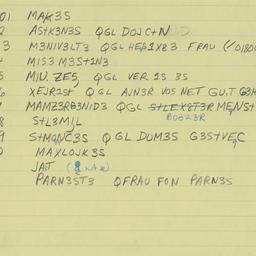 01 MAK3S
AStK3N3S QGL DOJC+N
3 M3NIV3LT3 QGL HEP1X83 FRAU (/01800
MIS3 M3St1N3
MIU ZE5 QGL VER 1S 3S
XEJR1st QGL AJN3R VOS NET GUT G3H
7 MAMZ3RB3NID3 QGL StLEX8T3R MENSt
BOB23R
StL3M1L
9 StMONC3S QGL DUM3S G3StVEC
MAXLOJK3S
JAT
PARN3ST3 QFRAU FON PARN3S